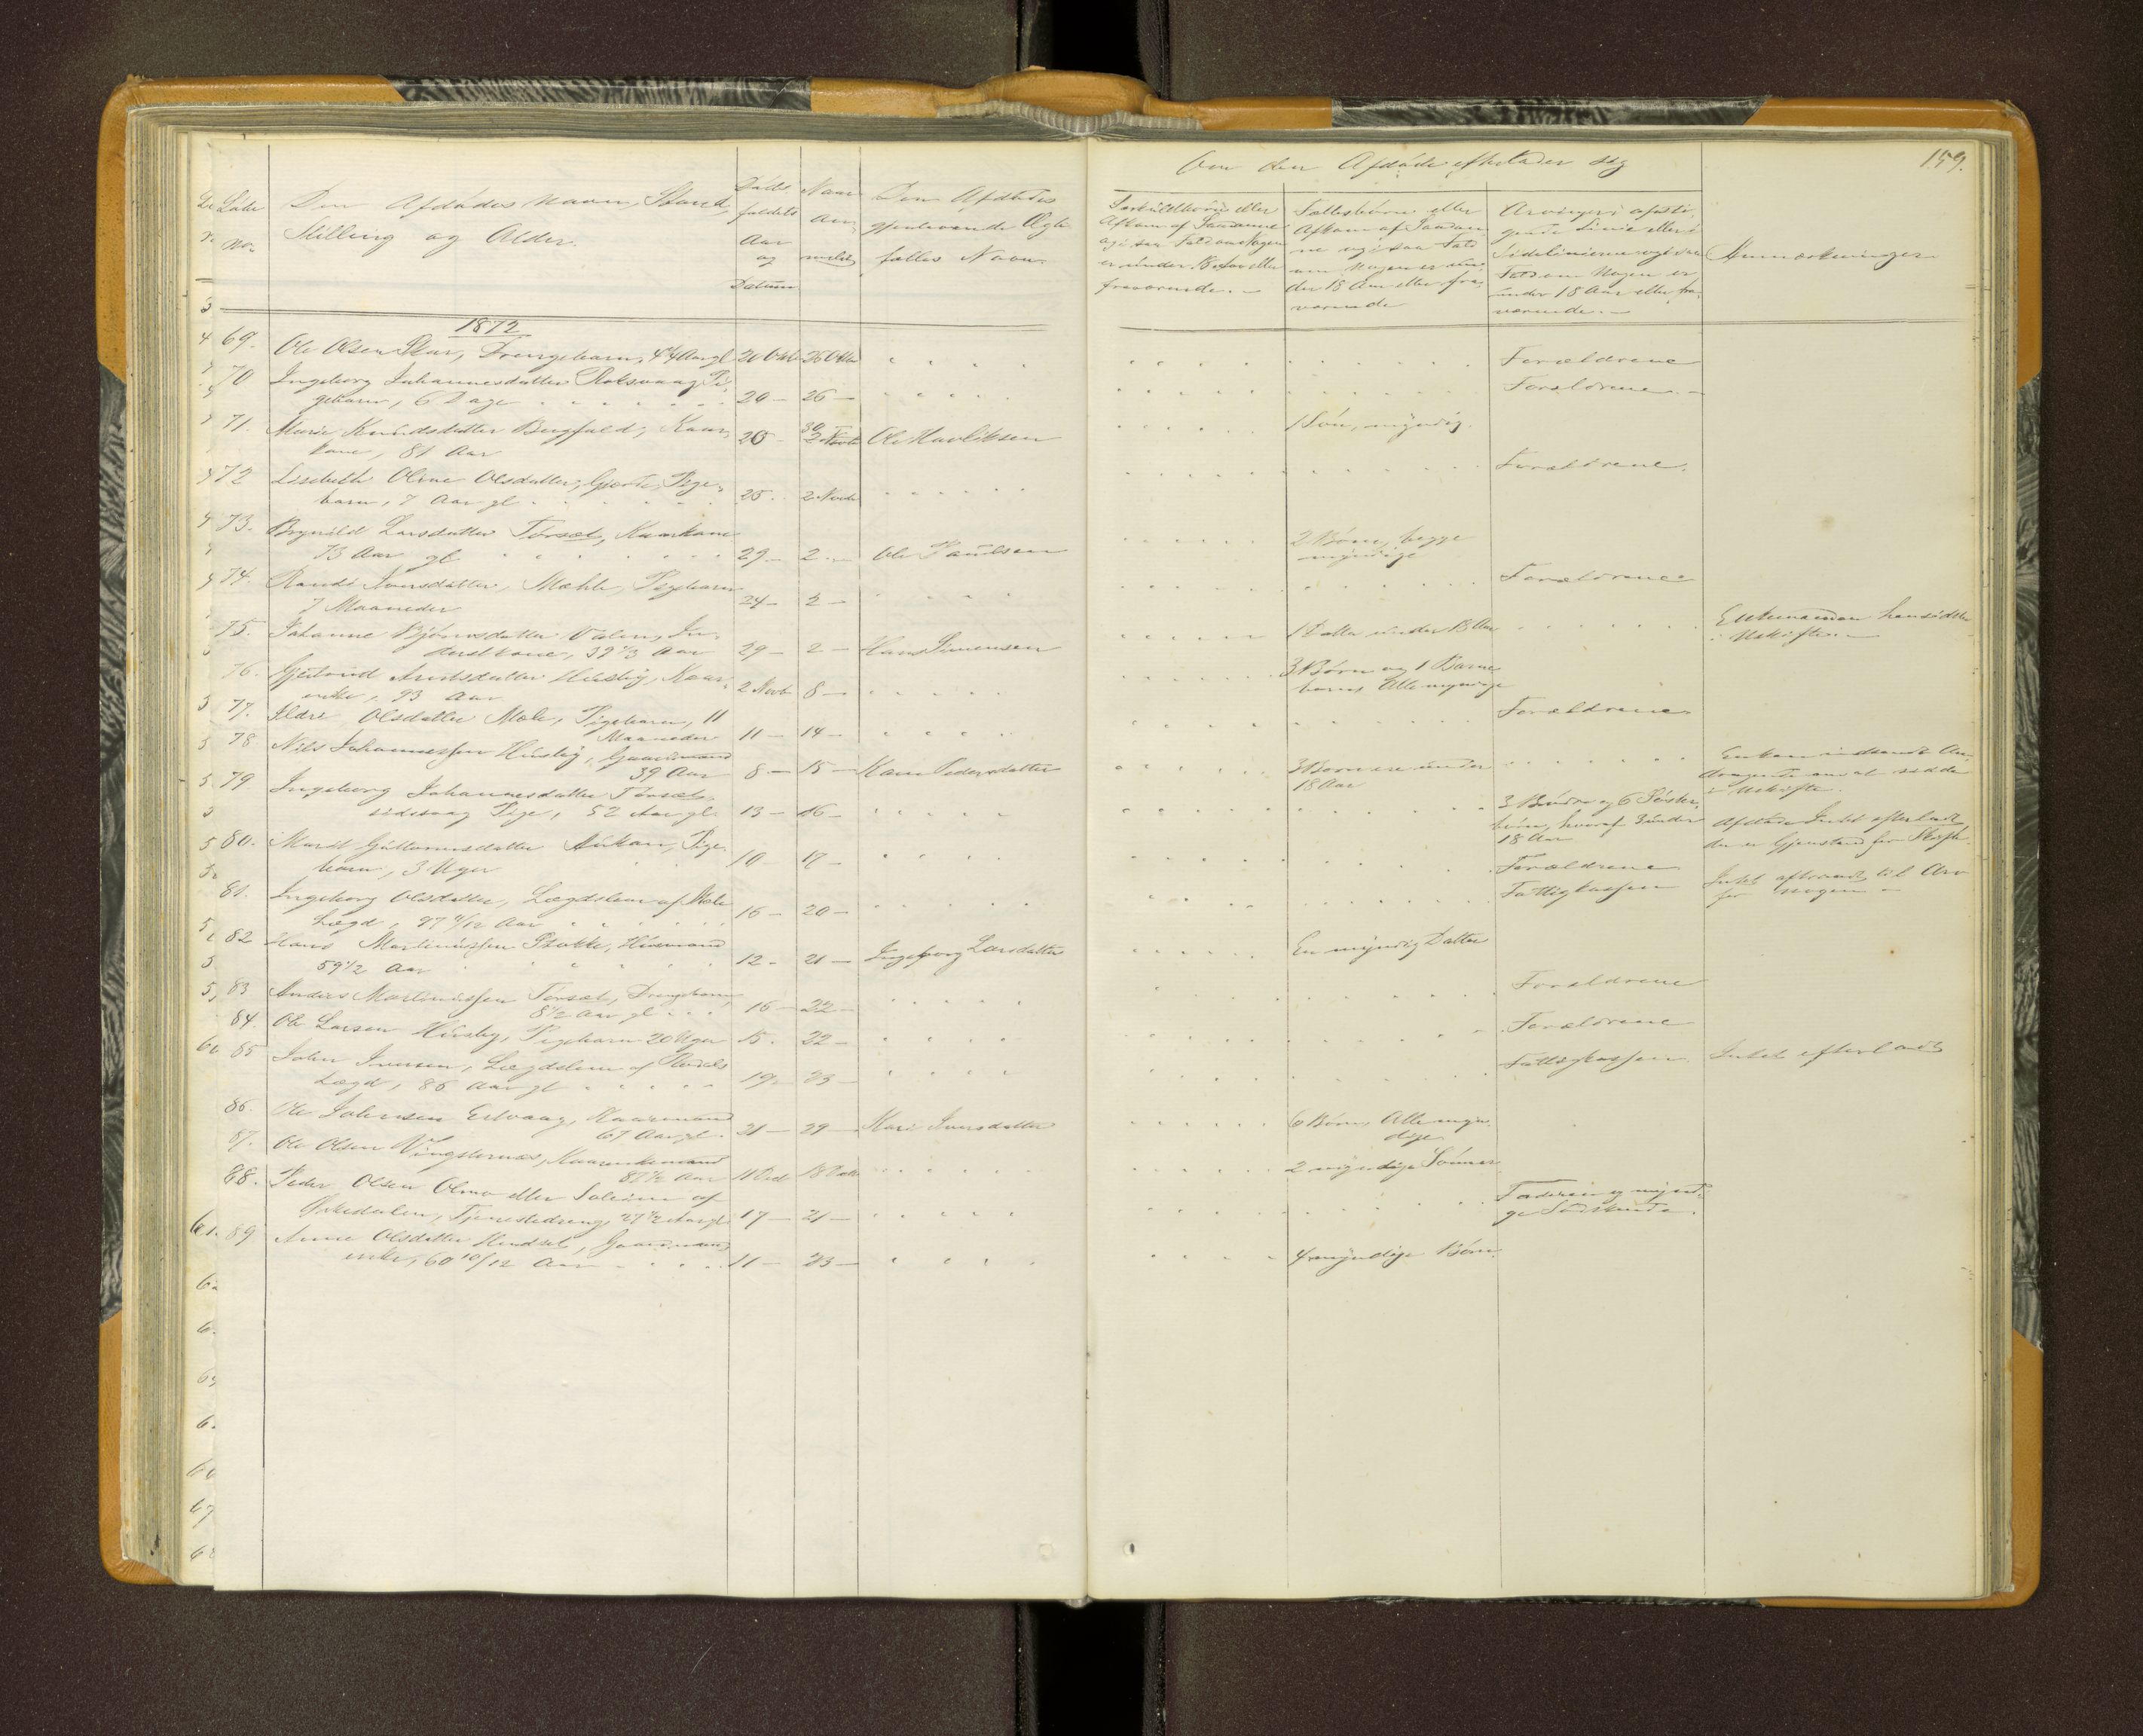 159.
Løbe
No
Den Afdødes Navn, Stand,
Stilling og Alder.
Døds-
faldets
Aar
og
Datum
Naar
An-
meldt
Den Afdødes
gjenlevende Ægte-
fælles Navn.
Om den Afdøde efterlader sig
Særkuldbørn eller
Afkom af Saadanne
og i saa Fald om Nogen
er under 18 Aar eller
fraværende.
Fællesbørn eller
Afkom af Saadan-
ne og i saa Fald
om Nogen er un-
der 18 Aar eller fra-
værende
Arvinger i opsti-
gende Linie eller i
Sidelinierne og i saa
Fald om Nogen er
under 18 Aar eller fra-
værende.
Anmærkninger
1872
69. Ole Olsen Skar, Drengebarn, 4 Aar gl 20 Oktb 26 Oktbr Forældrene
70 Ingeborg Johannesdatter Roksvaag Pi-
gebarn, 6 Dage 20 — 26 — Forældrene
71. Marie Knudsdatter Bergfald, Kaar-
kone, 81 Aar 20 — 30 2 Novb Ole Havliksen 1 Søn, myndig.
72 Lisebeth Oline Olsdatter, Pige-
barn, 7 Aar gl 25. 2 Novb Forældrene.
73. Brynild Larsdatter Torsæt, Kaarkone
73 Aar gl 29 — 2 — Ole Paulsen 2 Børn, begge
myndige
74. Randi Iversdatter, Mæhle, Pigebarn
7 Maaneder 24 — 2 — Forældrene
75. Johanne Bjørnsdatter Valen, In-
derstkone, 39 1/3 Aar 29 — 2 — Hans Simensen 1 Datter under 18 Aar Enkemanden hensidder
i Uskifte.
76. Gjertrud Arntsdatter Husby, Kaar-
enke, 93 Aar 2 Novb 8 — 3 Børn og 1 Barne-
barn Alle myndige
77. Ildri Olsdatter Mæle, Pigebarn, 11
Maaneder 11 — 14 — Forældrene
78 Nils Johannessen Husby, Gaardmand
39 Aar 8 — 15 — Kari Pedersdatter 3 Børn under
18 Aar i Uskifte.
79. Ingeborg Johannesdatter Torsæt-
Pige, 52 Aar gl. 13 — 16 — 3 Brødre og 6 Søster-
børn, hvoraf 3 under
18 Aar Afdøde Intet efterladt
der er Gjenstand for Skifte.
80. Marit Guttormsdatter Aukan, Pige-
barn, 3 Uger 10 — 17 — Forældrene
81. Ingeborg Olsdatter, Lægdslem af Mæle
Lægd, 77 4/12 Aar 16 — 20 — Fattigkassen Intet efterladt til Arv
for nogen
82 Hans Martinussen Stokke, Huusmand
59 1/2 Aar 12 — 21 — Ingeborg Larsdatter En myndig Datter
83 Anders Martinussen Torsæt, Drengebarn
8 1/2 Aar gl 16 — 22 — Forældrene
84. Ole Larsen Husby, Pigebarn 20 Uger 15. 22 — Forældrene
85 John Iversen, Lægdslem af
Lægd, 86 Aar gl 19 — 23 — Fattigkassen Intet efterladt
86. Ole Johnsen Ertvaag, Kaarmand
67 Aar gl. 21 — 29 — Kari Iversdatter 6 Børn, Alle myn-
dige
87. Ole Olsen Vingsternæs, Kaarenkemand
87 1/2 Aar 11 Decb 18 Decb 2 myndige Sønner
88. Peder Olsen Olmo eller Soleim af
Orkedalen, Tjenestedreng, 27 1/2 Aar gl 17 — 21 — Faderen og myndi-
ge Sødskende.
89 Anne Olsdatter Hendset, Gaardmands
enke, 60 10/12 Aar 11 — 23 — 4 myndige Børn.